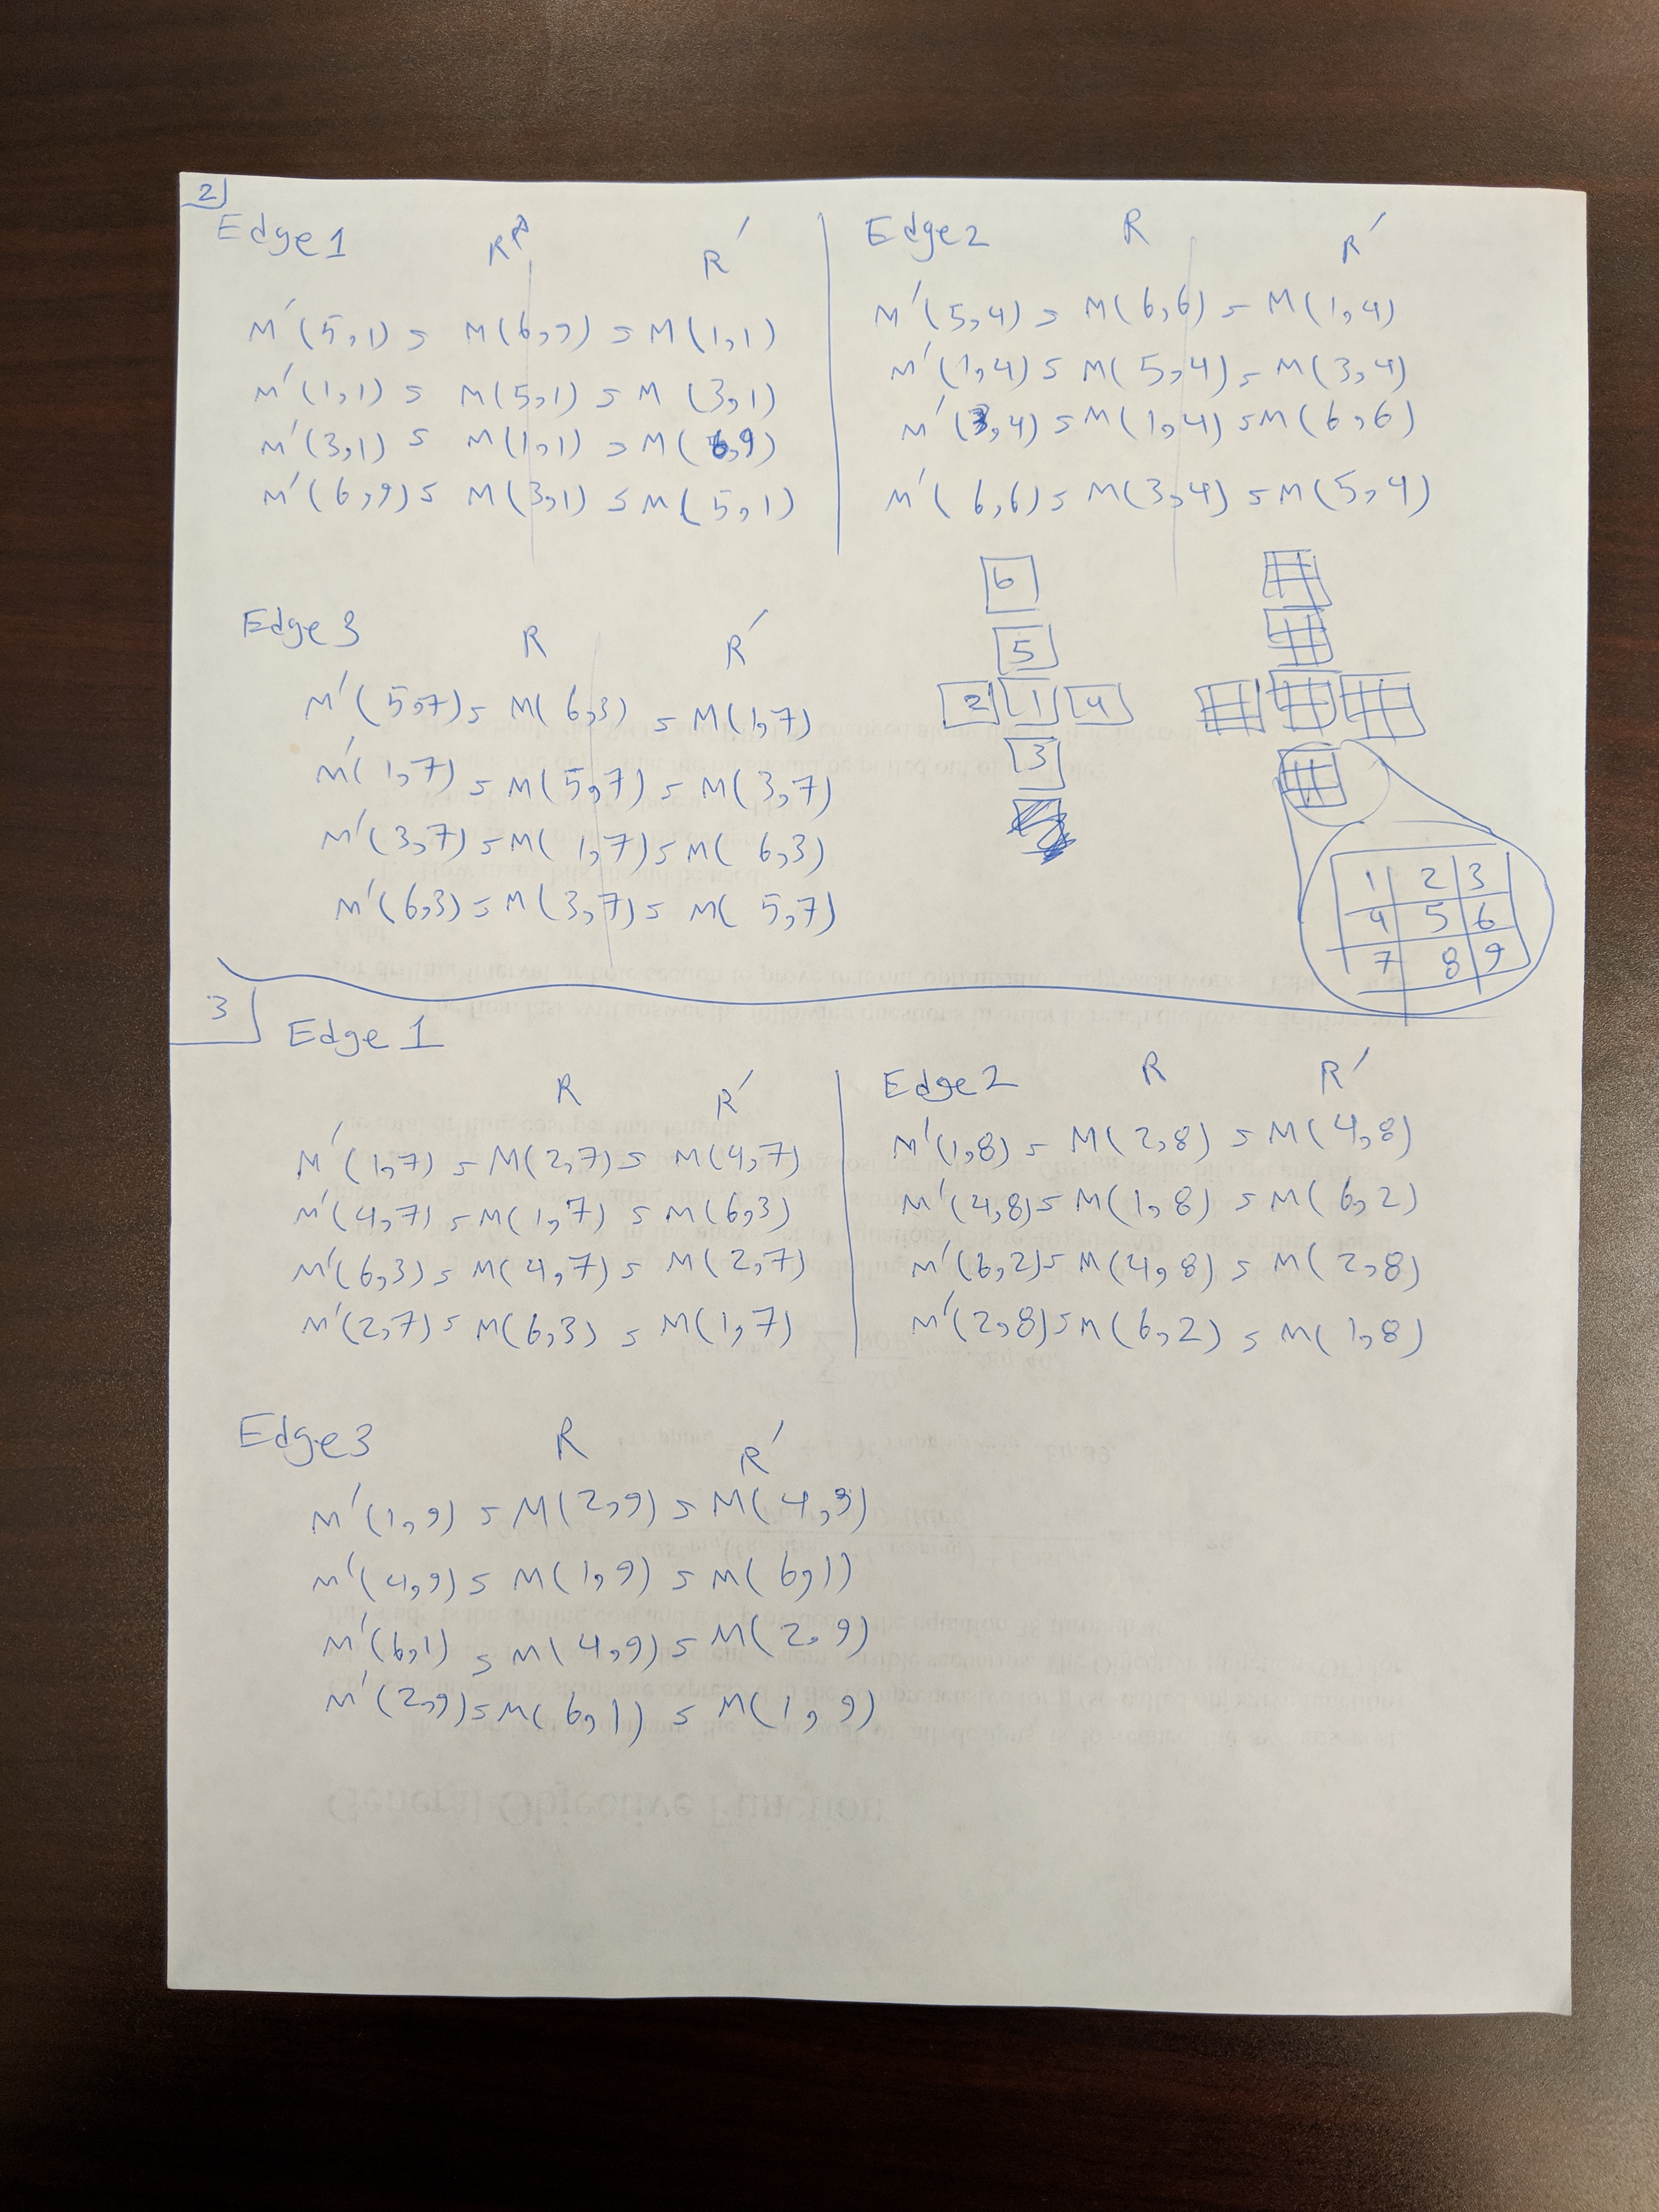 2
Edge 1 R R′
M′(5,1) = M(6,9) = M(1,1)
M′(1,1) = M(5,1) = M(3,1)
M′(3,1) = M(1,1) = M(6,9)
M′(6,9) = M(3,1) = M(5,1)
Edge2 R R′
M′(5,4) = M(6,6) = M(1,4)
M′(1,4) = M(5,4) = M(3,4)
M′(3,4) = M(1,4) = M(6,6)
M′(6,6) = M(3,4) = M(5,4)
Edge 3 R R′
M′(5,7) = M(6,3) = M(1,7)
M′(1,7) = M(5,7) = M(3,7)
M′(3,7) = M(1,7) = M(6,3)
M′(6,3) = M(3,7) = M(5,7)
6
5
2 1 4
3
1 2 3
4 5 6
7 8 9
3
Edge 1
R R′
M′(1,7) = M(2,7) = M(4,7)
M′(4,7) = M(1,7) = M(6,3)
M′(6,3) = M(4,7) = M(2,7)
M′(2,7) = M(6,3) = M(1,7)
Edge2 R R′
M′(1,8) = M(2,8) = M(4,8)
M′(4,8) = M(1,8) = M(6,2)
M′(6,2) = M(4,8) = M(2,8)
M′(2,8) = M(6,2) = M(1,8)
Edge3 R R′
M′(1,9) = M(2,9) = M(4,9)
M′(4,9) = M(1,9) = M(6,1)
M′(6,1) = M(4,9) = M(2,9)
M′(2,9) = M(6,1) = M(1,9)
General Objective Function